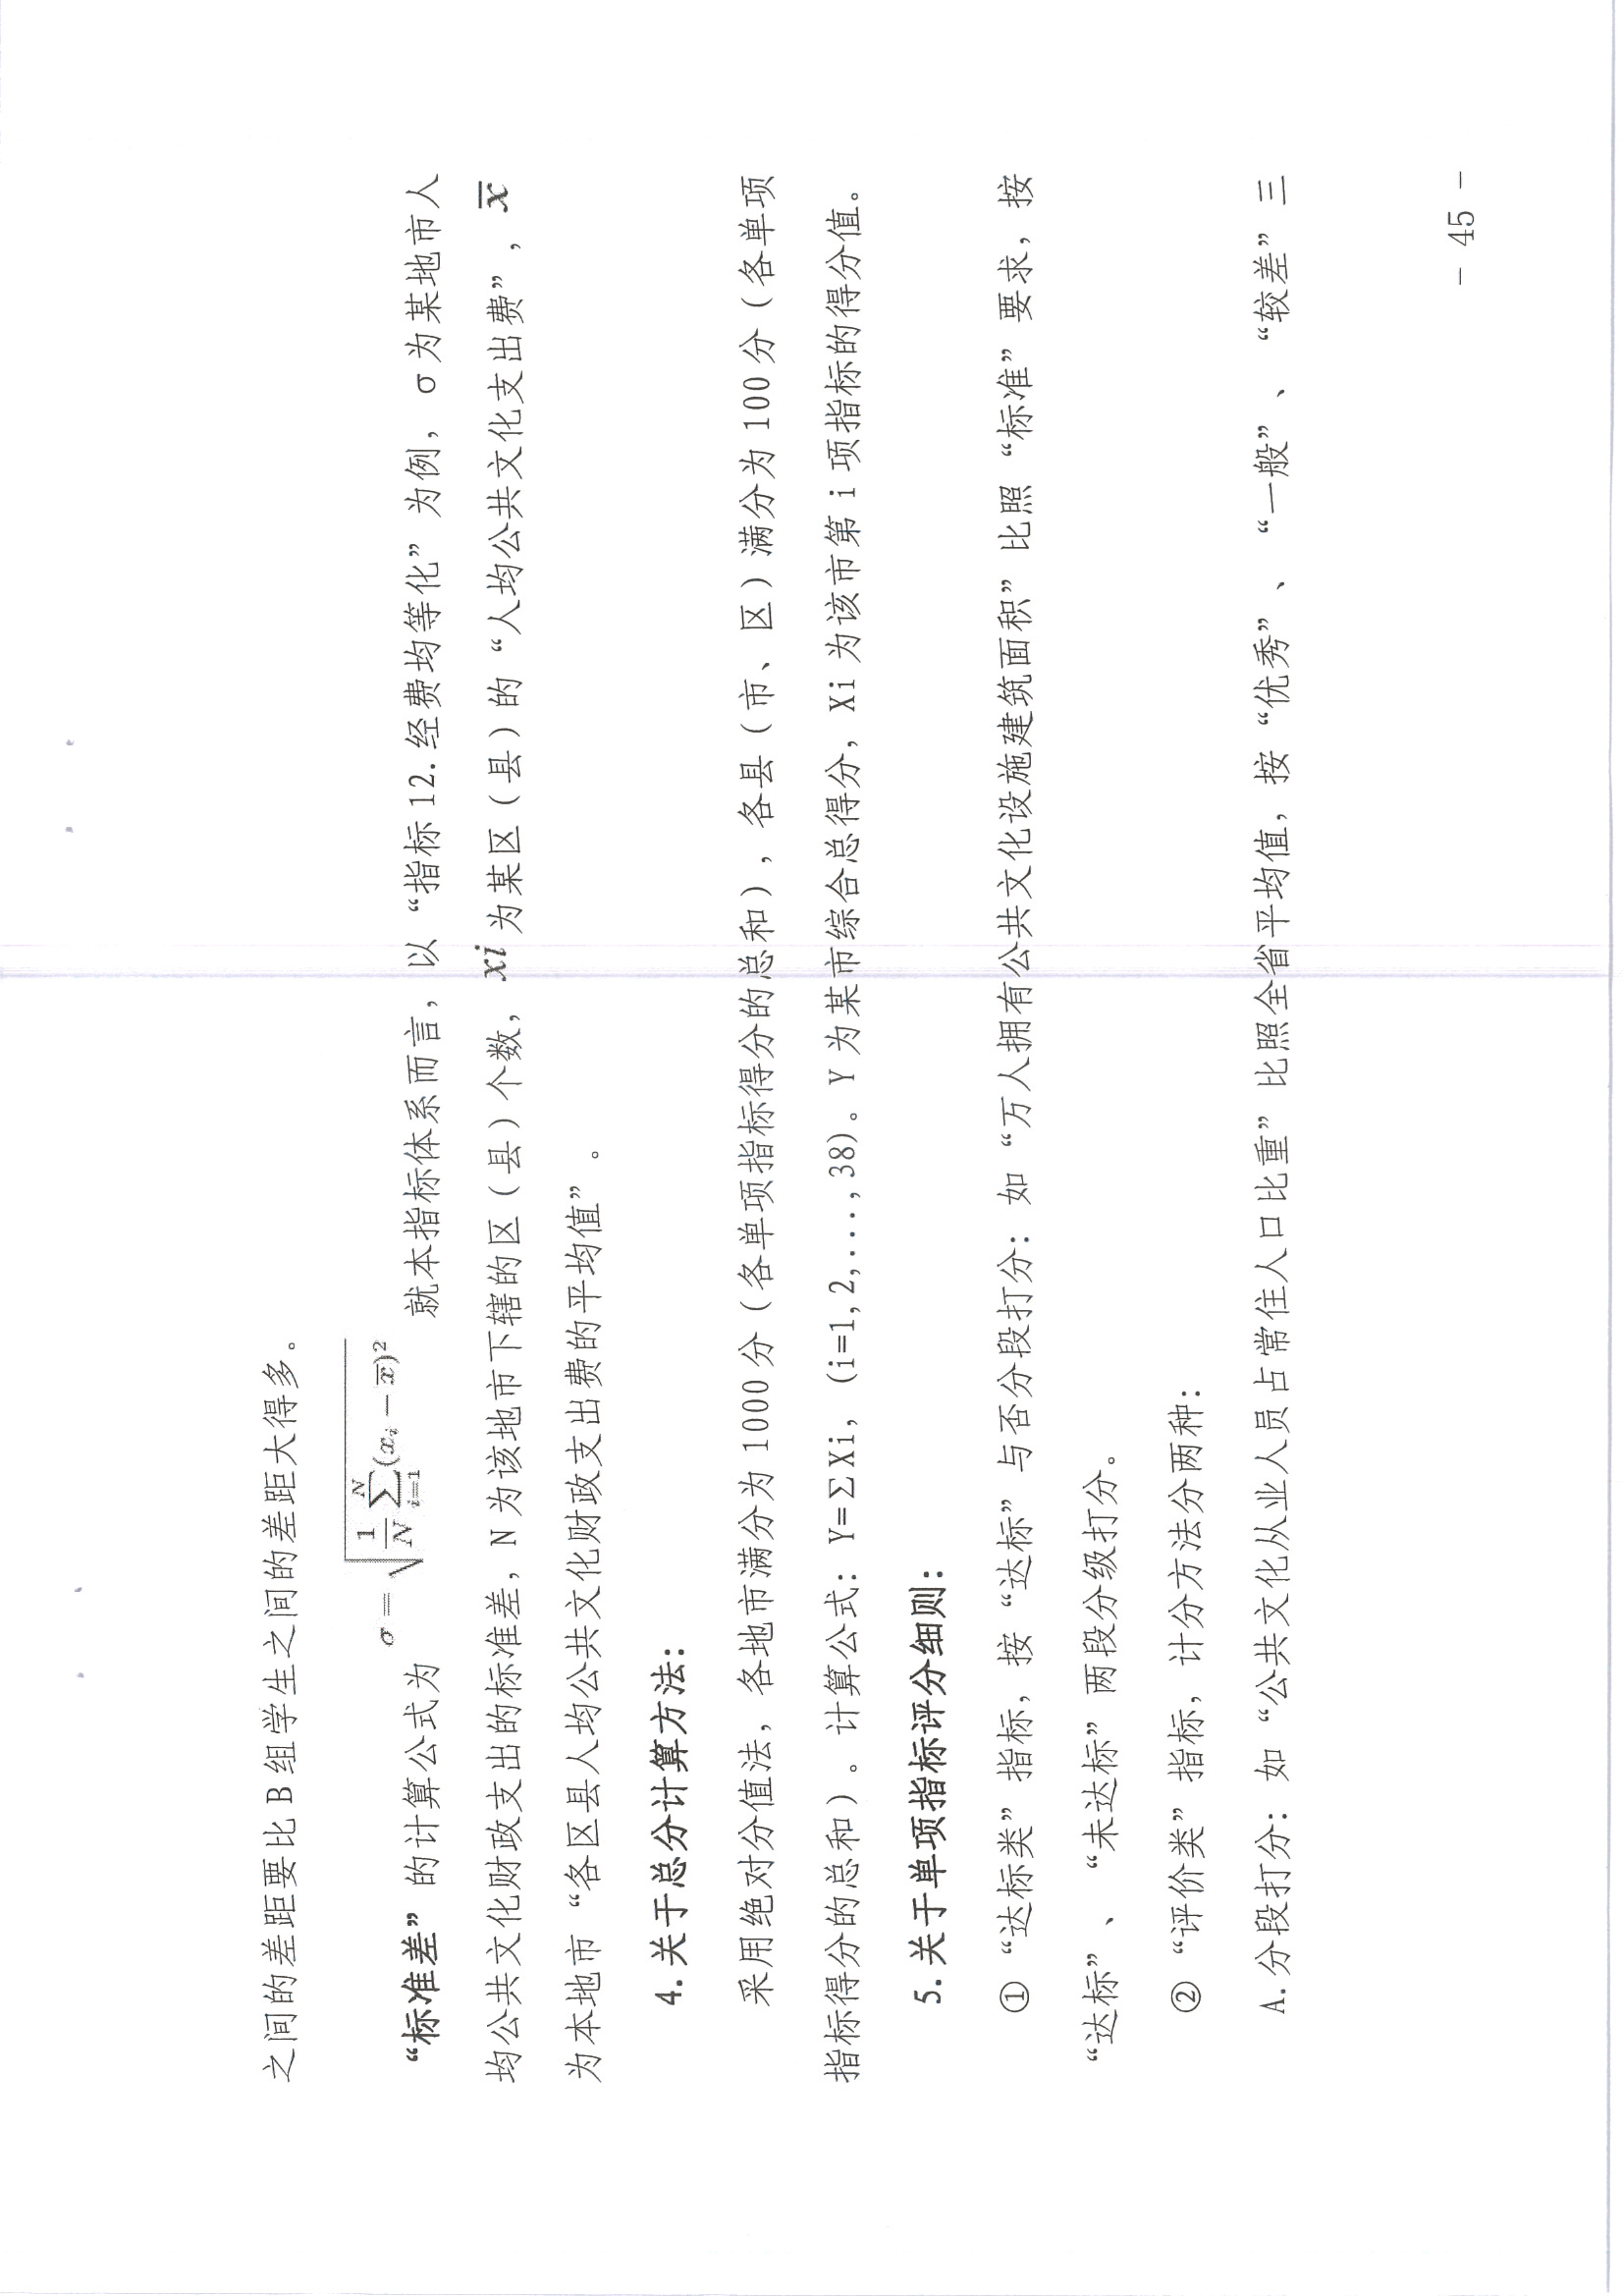 之间的差距要比 B 组学生之间的差距大得多。
“标准差”的计算公式为 σ = √(1/N ∑_{i=1}^{N} (x_i − x̄)²) 就本指标体系而言，以“指标 12.经费均等化”为例，σ 为某地市人
均公共文化财政支出的标准差，N 为该地市下辖的区（县）个数，xi 为某区（县）的“人均公共文化支出费”，x̄
为本地市“各区县人均公共文化财政支出费的平均值”。
4.关于总分计算方法：
采用绝对分值法，各地市满分为 1000 分（各单项指标得分的总和），各县（市、区）满分为 100 分（各单项
指标得分的总和）。计算公式：Y=∑Xi，(i=1,2,...,38)。Y 为某市综合总得分，Xi 为该市第 i 项指标的得分值。
5.关于单项指标评分细则：
①“达标类”指标，按“达标”与否分段打分：如“万人拥有公共文化设施建筑面积”比照“标准”要求，按
“达标”、“未达标”两段分级打分。
②“评价类”指标，计分方法分两种：
A.分段打分：如“公共文化从业人员占常住人口比重”比照全省平均值，按“优秀”、“一般”、“较差”三
－ 45 －